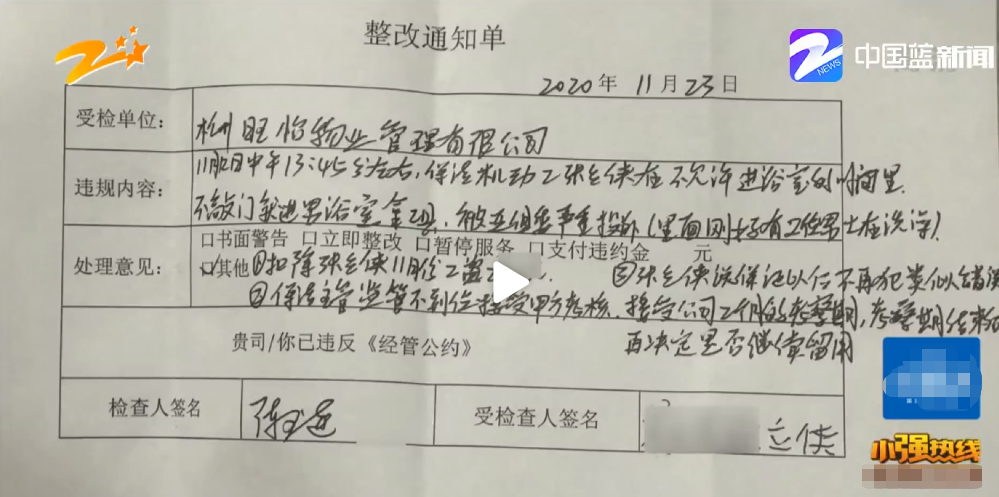 中国蓝新闻
NEWS
整改通知单
2020年11月23日
受检单位:
杭州旺怡物业管理有限公司
违规内容:
中午13:45分左右,保洁机动工张立侠在不允许进浴室的时间里
不敲门就进男浴室拿工具,被业组严重投诉(里面刚好有2位男士在洗澡)
处理意见:
□书面警告 □立即整改 □暂停服务 □支付违约金 元
□其他 ①扣除张立侠11月份工 ③张立侠须保证以后不再犯类似错误
②保洁主管监管不到位接受甲方考核、接受公司2个月的考察期,考察期结束后
再决定是否继续留用
贵司/你已违反《经管公约》
检查人签名
受检查人签名
立侠
小强热线